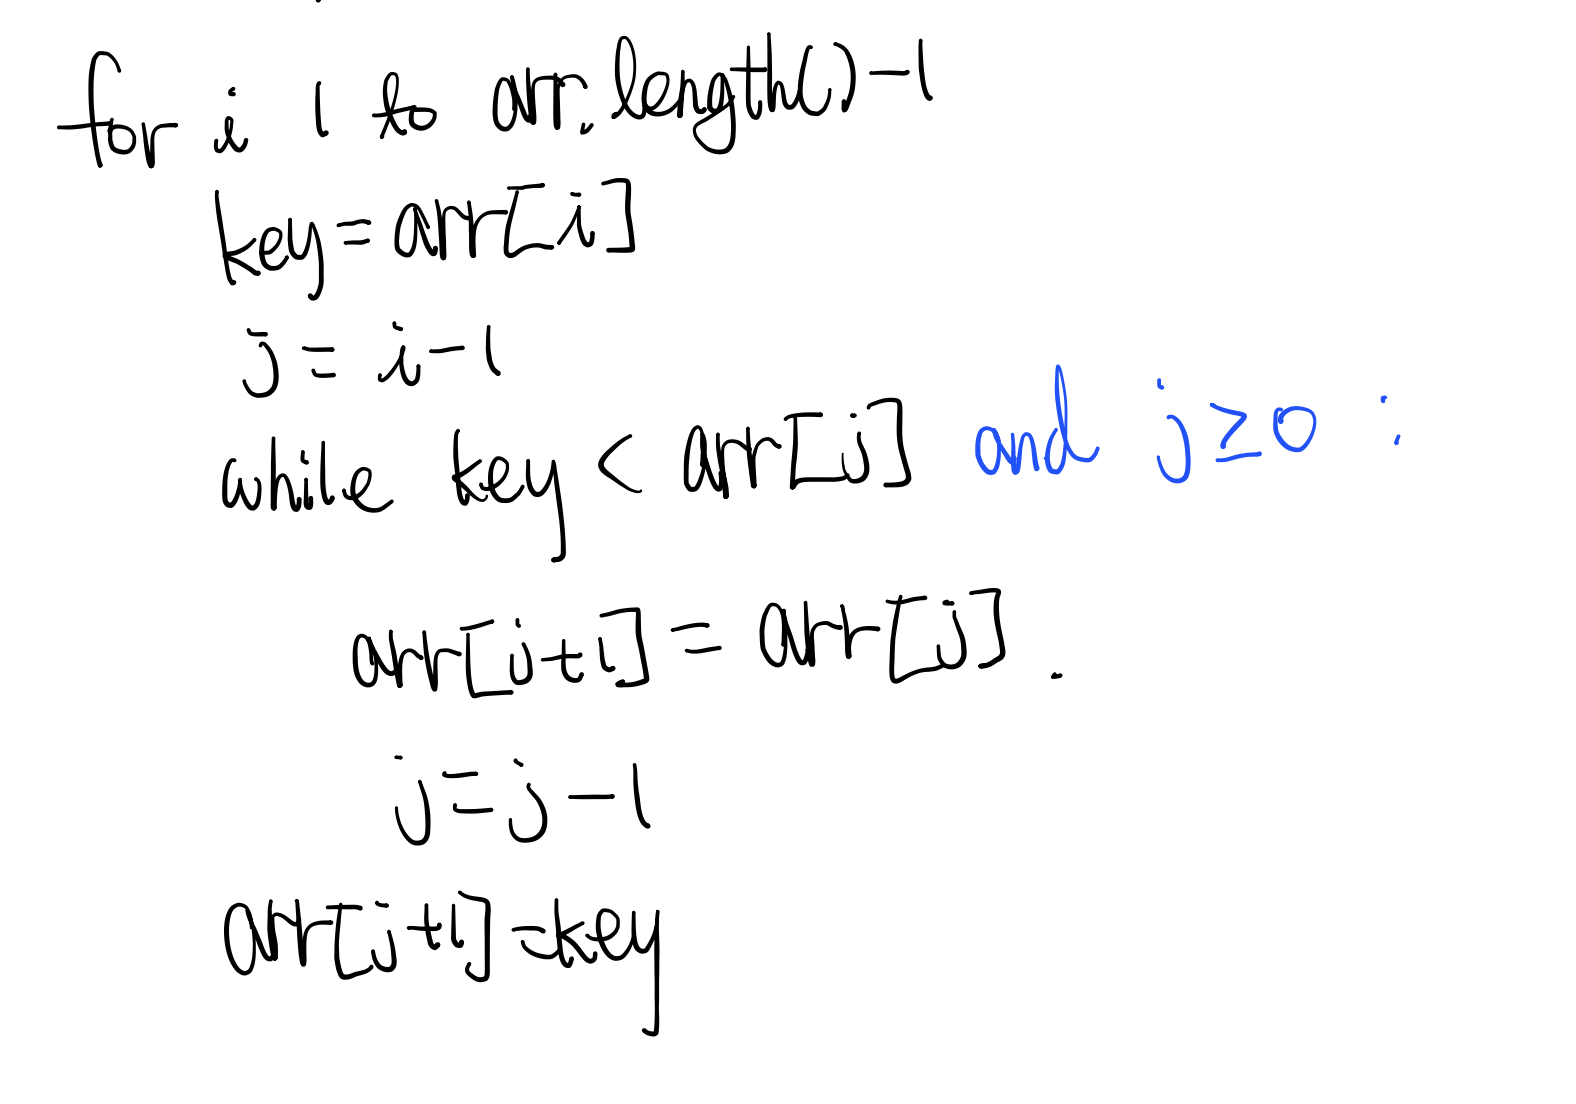 for i 1 to arr.length()-1
key=arr[i]
j = i-1
while key < arr[j] and j≥0 :
arr[j+1] = arr[j].
j=j-1
arr[j+1]=key